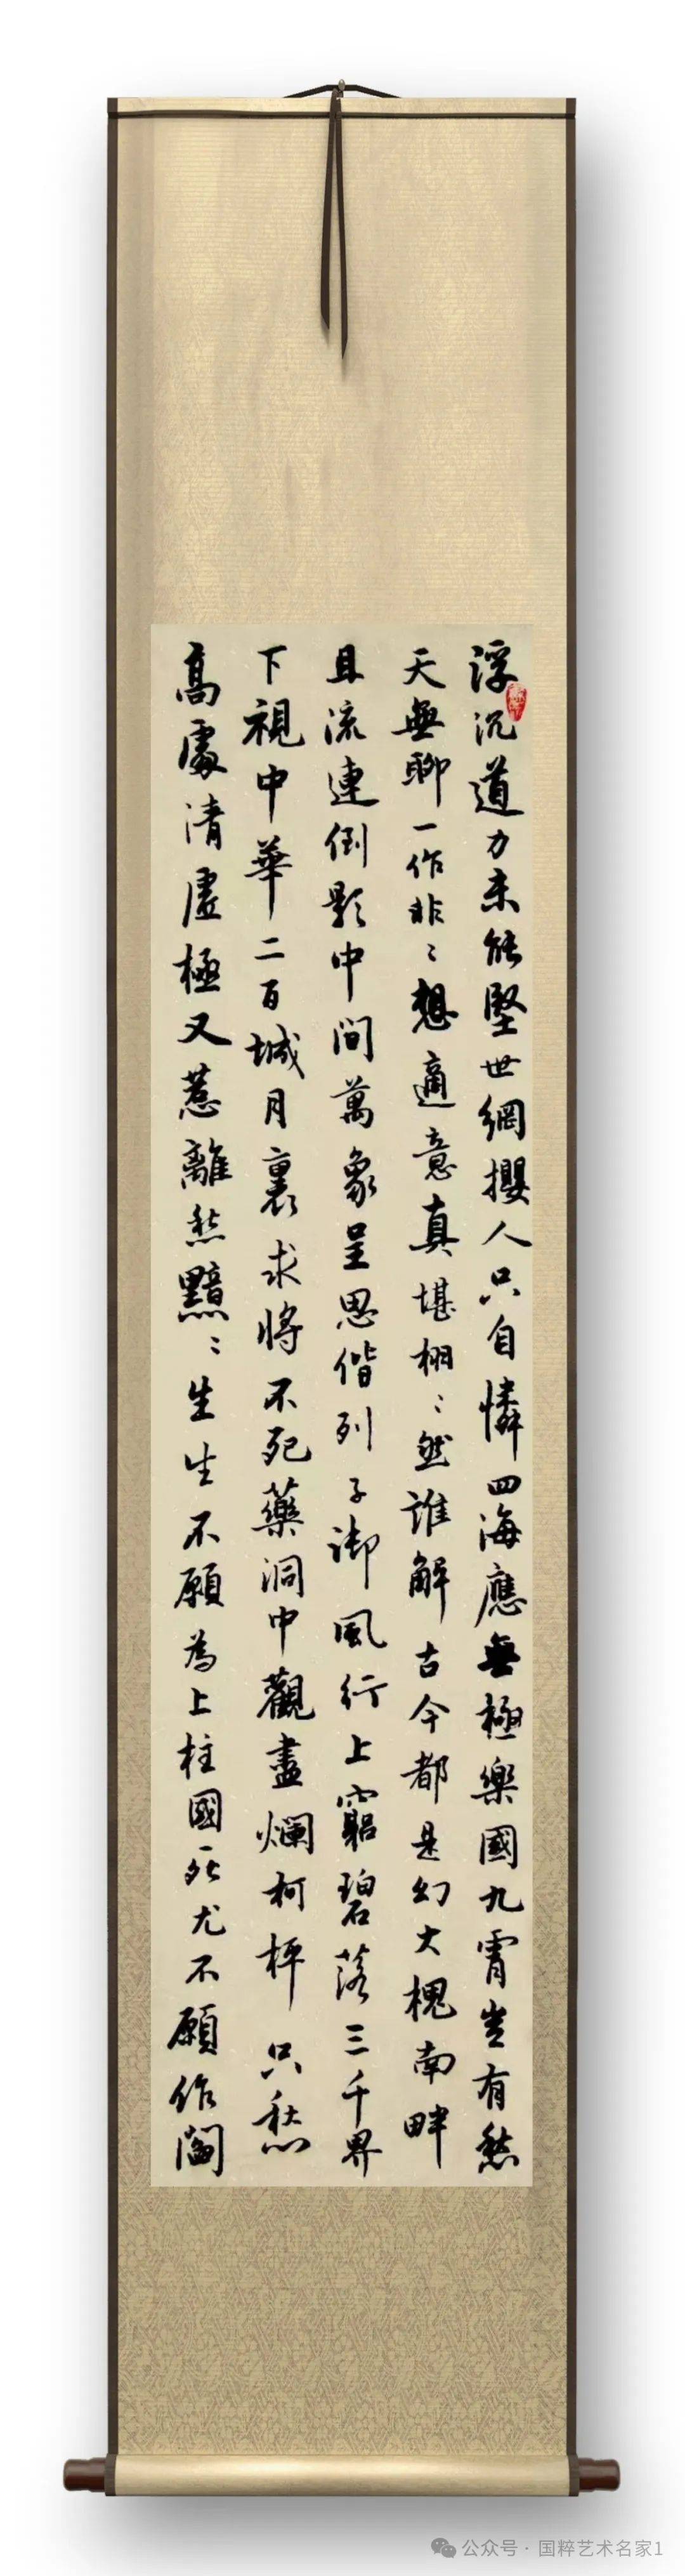 浮沉道力未能堅世網攖人只自憐四海應無極樂國九霄豈有愁
天無聊一作非〻想適意真堪栩〻然誰解古今都是幻大槐南畔
且流連倒影中間萬象呈思偕列子御風行上窮碧落三千界
下視中華二百城月裏求將不死藥洞中觀盡爛柯枰只愁
高處清虛極又惹離愁黯〻生生不願為上柱國死尤不願作閻
公众号·国粹艺术名家1